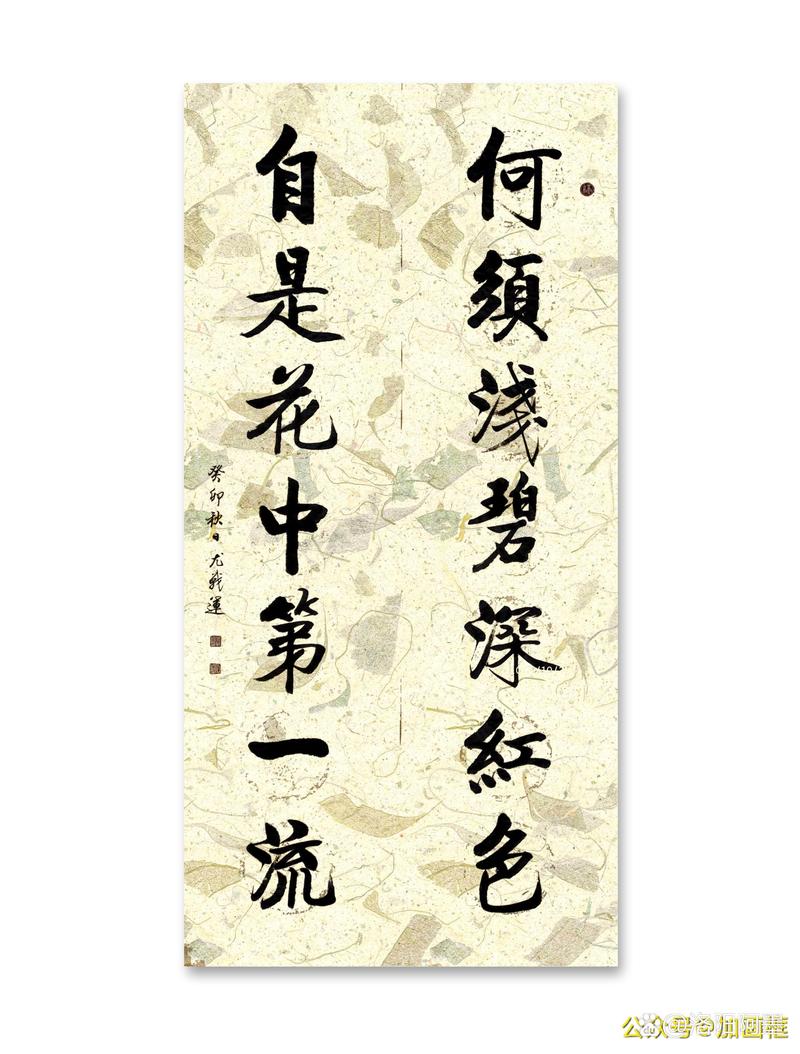 何須淺碧深紅色
自是花中第一流
癸卯秋日尤戰運
公众号@加画框